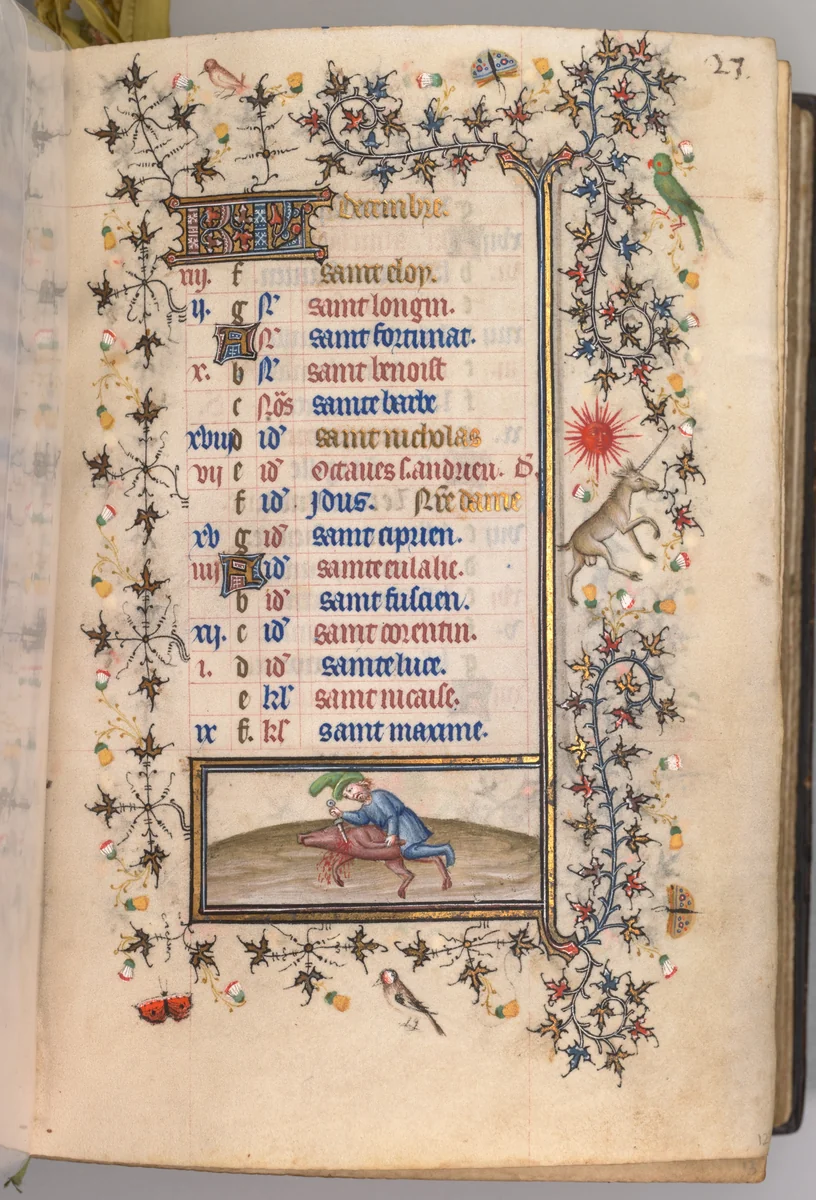 27.
KL decembre.
xiij. f saint eloy.
ij. g N saint longin.
A N saint fortunat.
x. b N saint benoist
c Nos̄ sainte barbe
xviij d id' saint nicholas
vij e id' Octaues s. andrieu.
f id' Jdus. Nr̄e dame
xv g id' saint ciprien.
iiij A id' sainte eulalie.
b id' saint fuscien.
xij. c id' saint corentin.
i. d id' sainte luce.
e kl' saint nicaise.
ix f. kl' saint maxime.